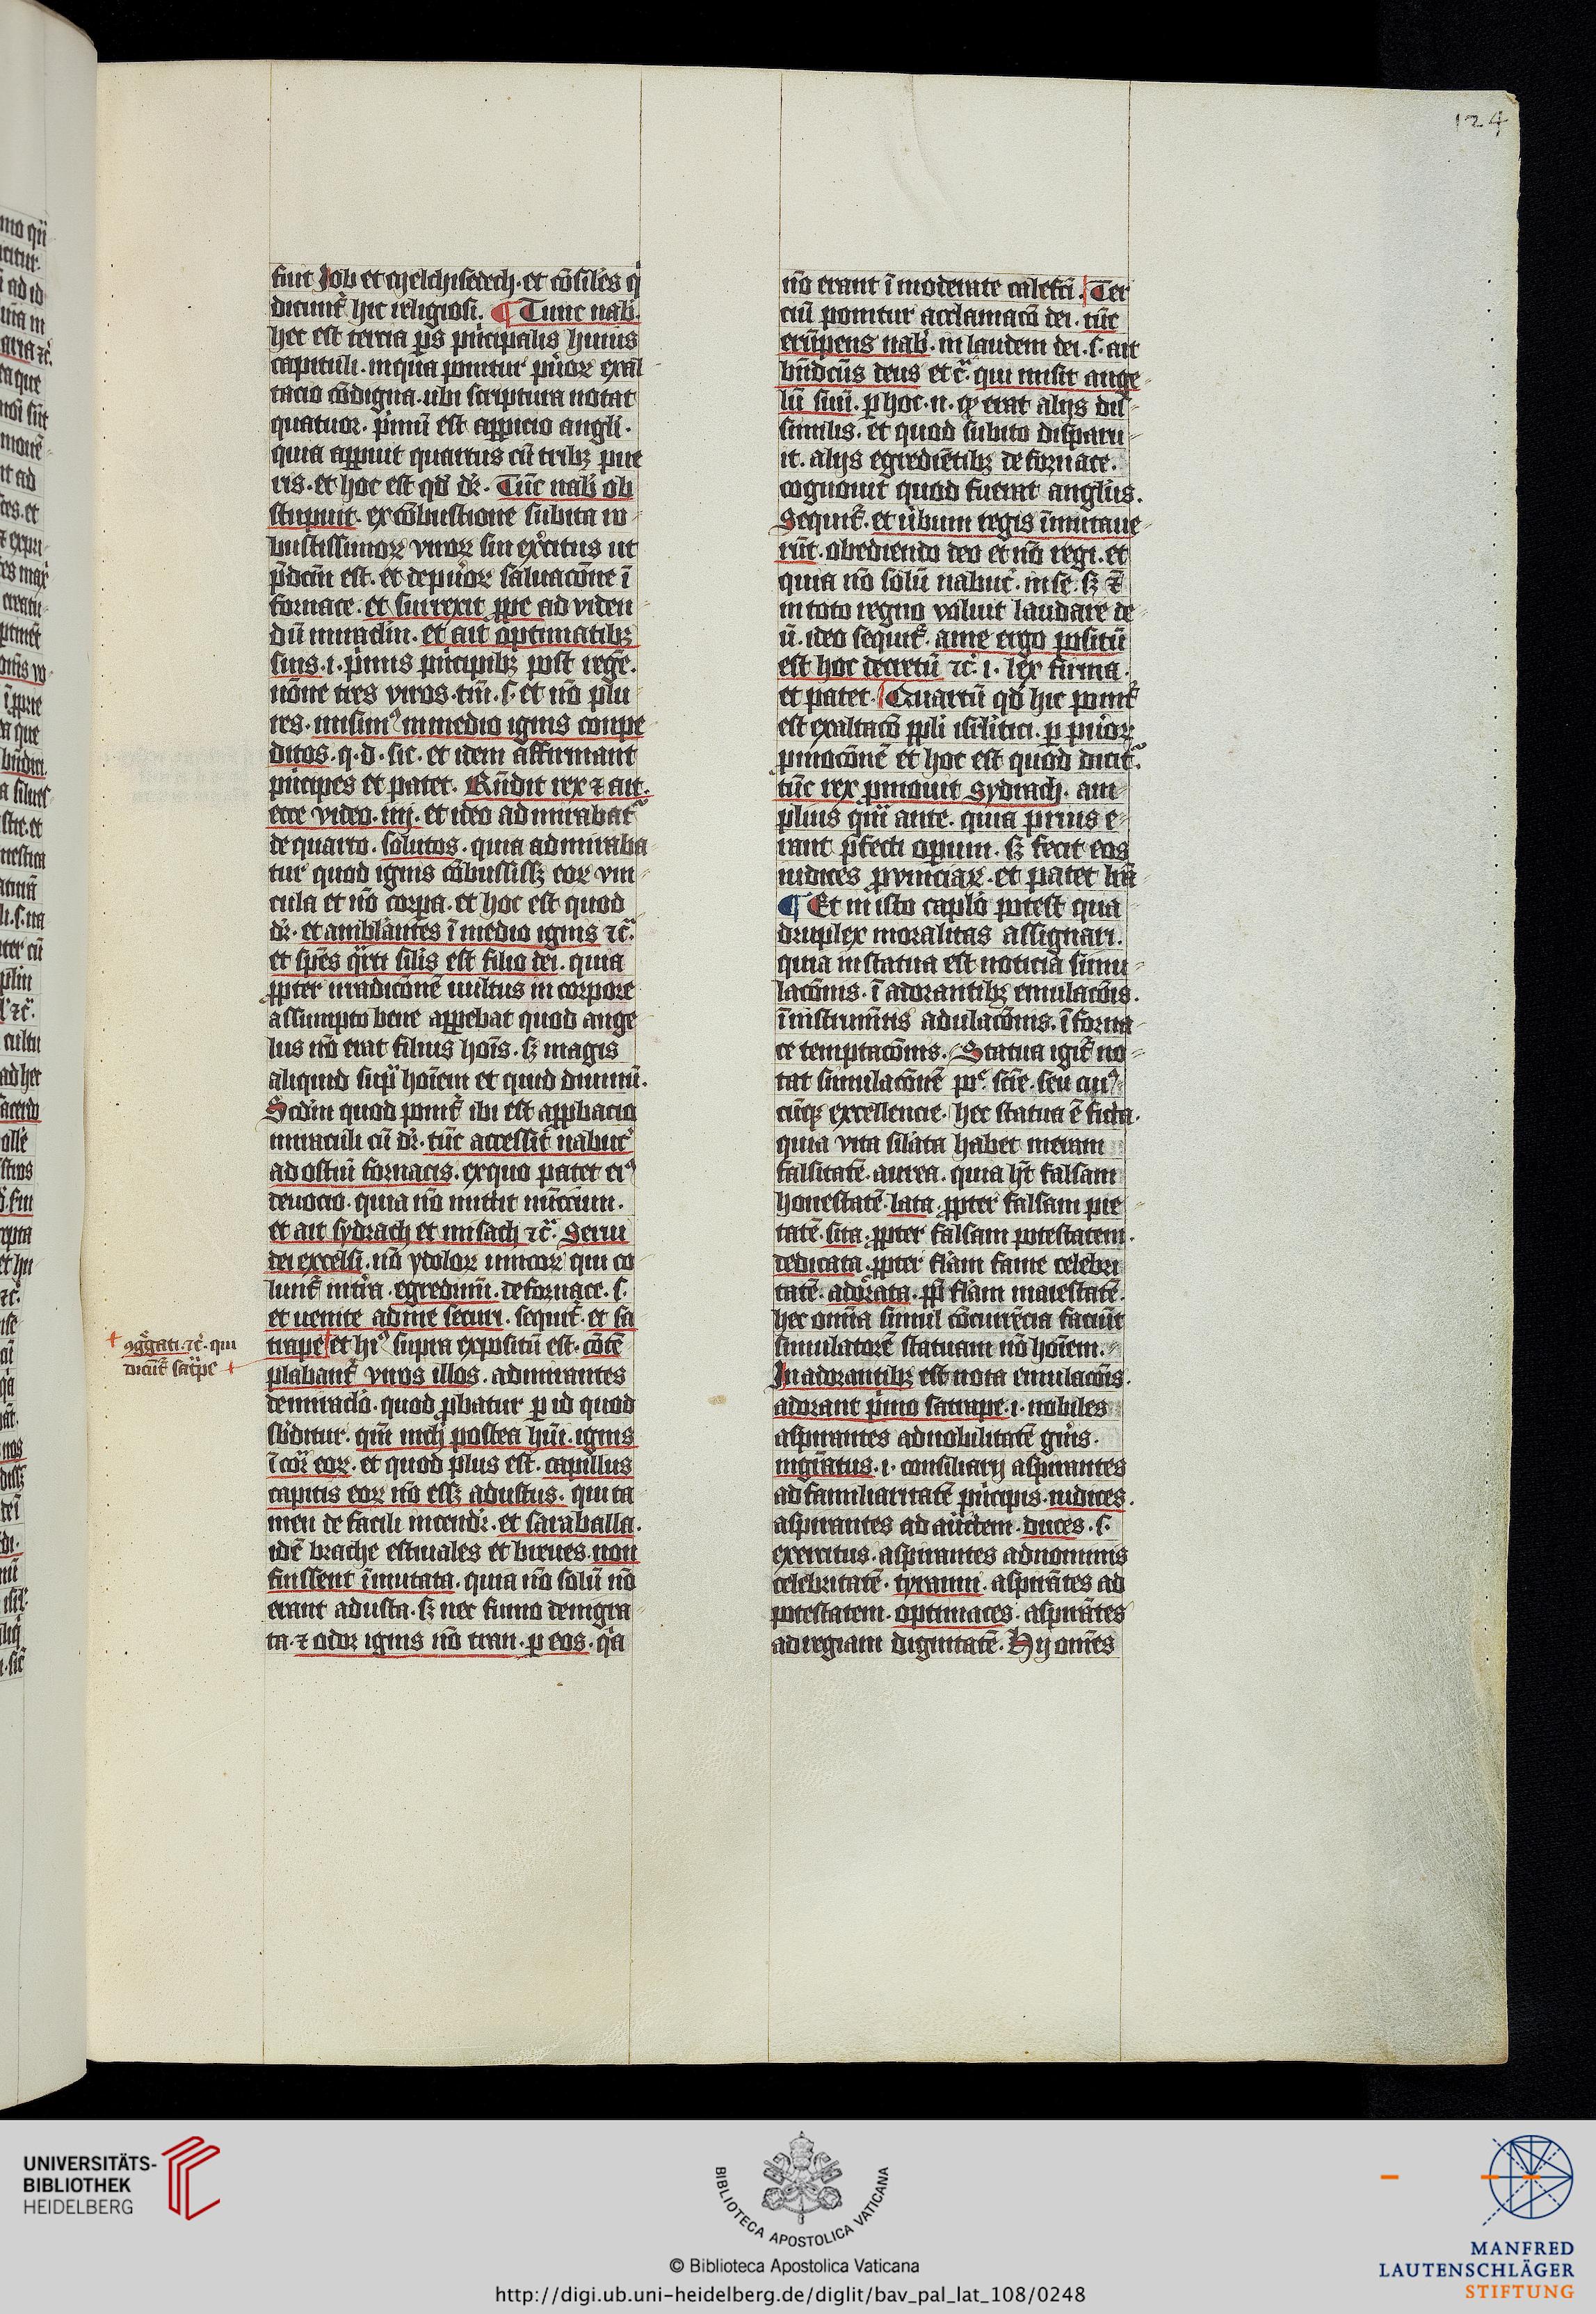 124
fuit Job et melchisedech. et cōsiles q̇
dicunt᷑ hic religiosi. ¶ Tunc nab.
hec est tercia ps pͥncipalis huius
capituli. in qua ponitur pͥuoꝝ exal
tacio cōdigna. ubi scriptura notat
quatuor. pͥmū est apꝑicio angli.
quia apꝑuit quartus cū tribꝫ pue
ris. et hoc est qd̄ dr̄. Tūc nab ob
stupuit. ex cōbustione subita ro
bustissimoꝝ viroꝝ sui exercitus ut
p̄dcm̄ est. et de puͥoꝝ saluacōne ī
fornace. et surrexit ꝓpe ad viden
dū miraclm̄. et ait optimatibꝫ
suis. i. pͥmis pͥncipibꝫ post regē.
nōne tres viros tm̄. s. et nō plu
res. misimꝰ in medio ignis conpe
ditos. q. d. sic. et idem affirmant
pͥncipes et patet. Rn̄dit rex ⁊ ait.
ecce video. iiij. et ideo admirabat᷑
de quarto. solutos. quia admiraba
tur quod ignis cōbussissꝫ eoꝝ vin
cula et nō corꝑa. et hoc est quod
dr̄. et ambl̄antes ī medio ignis ⁊c̄.
et spēs qͣrti silis est filio dei. quia
ꝓpter irradicōne vultus in corpore
assumpto bene apꝑebat quod ange
lus nō erat filius hoīs. sꝫ magis
aliquid supͣ hoīem et quid diuinū.
Scdm̄ quod ponit᷑ ibi est apꝓbacio
miraculi cū dr̄. tūc accessit nabuc̄
ad ostiū fornacis. ex quo patet eiꝰ
deuocio. quia nō mittit nūccium.
et ait sydrach et misach ⁊c̄. Serui
dei excelsi. nō ydoloꝝ
lunt᷑ egredimī. de fornace. s.
et uenite ad me securi. sequit᷑. et sa
trape et hiꝰ supra expositū est. cōtē
ꝯgͣgati. ⁊c̄. qui
dicūt᷑ satͣpe
plabant᷑ viros illos. admirantes
de miraclo. quod ꝓbatur ꝑ id quod
sbditur. qm̄ nich̄ postea hūi. ignis
ī coꝛ eoꝝ. et quod plus est. capillus
capitis eoꝝ nō essꝫ adustus. qui ta
men de facili incendr̄. et saraballa.
idē brache estiuales et breues. non
fuissent īmutata. quia nō solū nō
erant adusta. sꝫ nec fumo denigra
ta. ⁊ odor ignis nō tran. ꝑ eos. qͥa
nō erant īmoderate calefcī. Ter
ciū ponitur acclamacō dei. tūc
erūpens nab. in laudem dei. s. ait
bn̄dcūs deus et c̄. qui misit ange
lū suū. ꝑ hoc. n. qꝫ erat alijs dis
similis. et quod subito disparu
it. alijs egrediētibꝫ de fornace.
cognouit quod fuerat anglus.
Sequit᷑. et uͤbum regis īmutaue
rūt. obediendo deo et nō regi. et
quia nō solū nabuc̄. in se. sꝫ ⁊
in toto regno voluit laudare de
ū. ideo sequit᷑. a me ergo positū
est hoc decretū ⁊c̄. i. lex firma.
et patet. Quartū qd̄ hic ponit᷑
est exaltacō ꝓpli isrlitici. ꝑ puͥoꝝ
ꝓmocōnē et hoc est quod dicit᷑.
tūc rex ꝓmouit sydrach. am
plius qͣ ante. quia prius e
rant p̄fecti opeꝝ. sꝫ fecit eos
iudices ꝓvinciaꝝ. et patet lrā
¶ Et in isto caplo potest qua
druplex moralitas assignari.
quia in statua est noticia simu
lacōnis. ī adorantibꝫ emulacōis.
ī instrumētis adulacōnis. ī forna
ce temptacōnis. Statua igit᷑ no
tat simulacōnē seu cuiꝰ
cūqꝫ excellencie. hec statua ē ficta.
quia vita silata habet meram
falsitatē. aurea. quia hꝫ falsam
honestatē. lata. ꝓpter falsam pie
tatē. sita. ꝓpter falsam potestatem.
dedicata. ꝓpter flam̄ fame celebri
tatē. adorata. ꝓpt flam̄ maiestatē.
hec omīa simul cōcurrēcia faciūt
simulatorē statuam nō hoīem.
In adorantibꝫ est nota emulacōis.
adorant pͥmo satrape. i. nobiles
aspirantes ad nobilitatē gn̄is.
magr̄atus. i. consiliarij aspirantes
ad familiaritatē pͥncipis. iudices.
aspirantes ad auctēm. duces. s.
exercitus. aspirantes ad nominis
celebritatē. tyranni. aspirātes ad
potestatem. optimates. aspirātes
ad regiam dignitatē. Hij omēs
UNIVERSITÄTS-
BIBLIOTHEK
HEIDELBERG
BIBLIOTECA APOSTOLICA VATICANA
© Biblioteca Apostolica Vaticana
http://digi.ub.uni-heidelberg.de/diglit/bav_pal_lat_108/0248
MANFRED
LAUTENSCHLÄGER
STIFTUNG